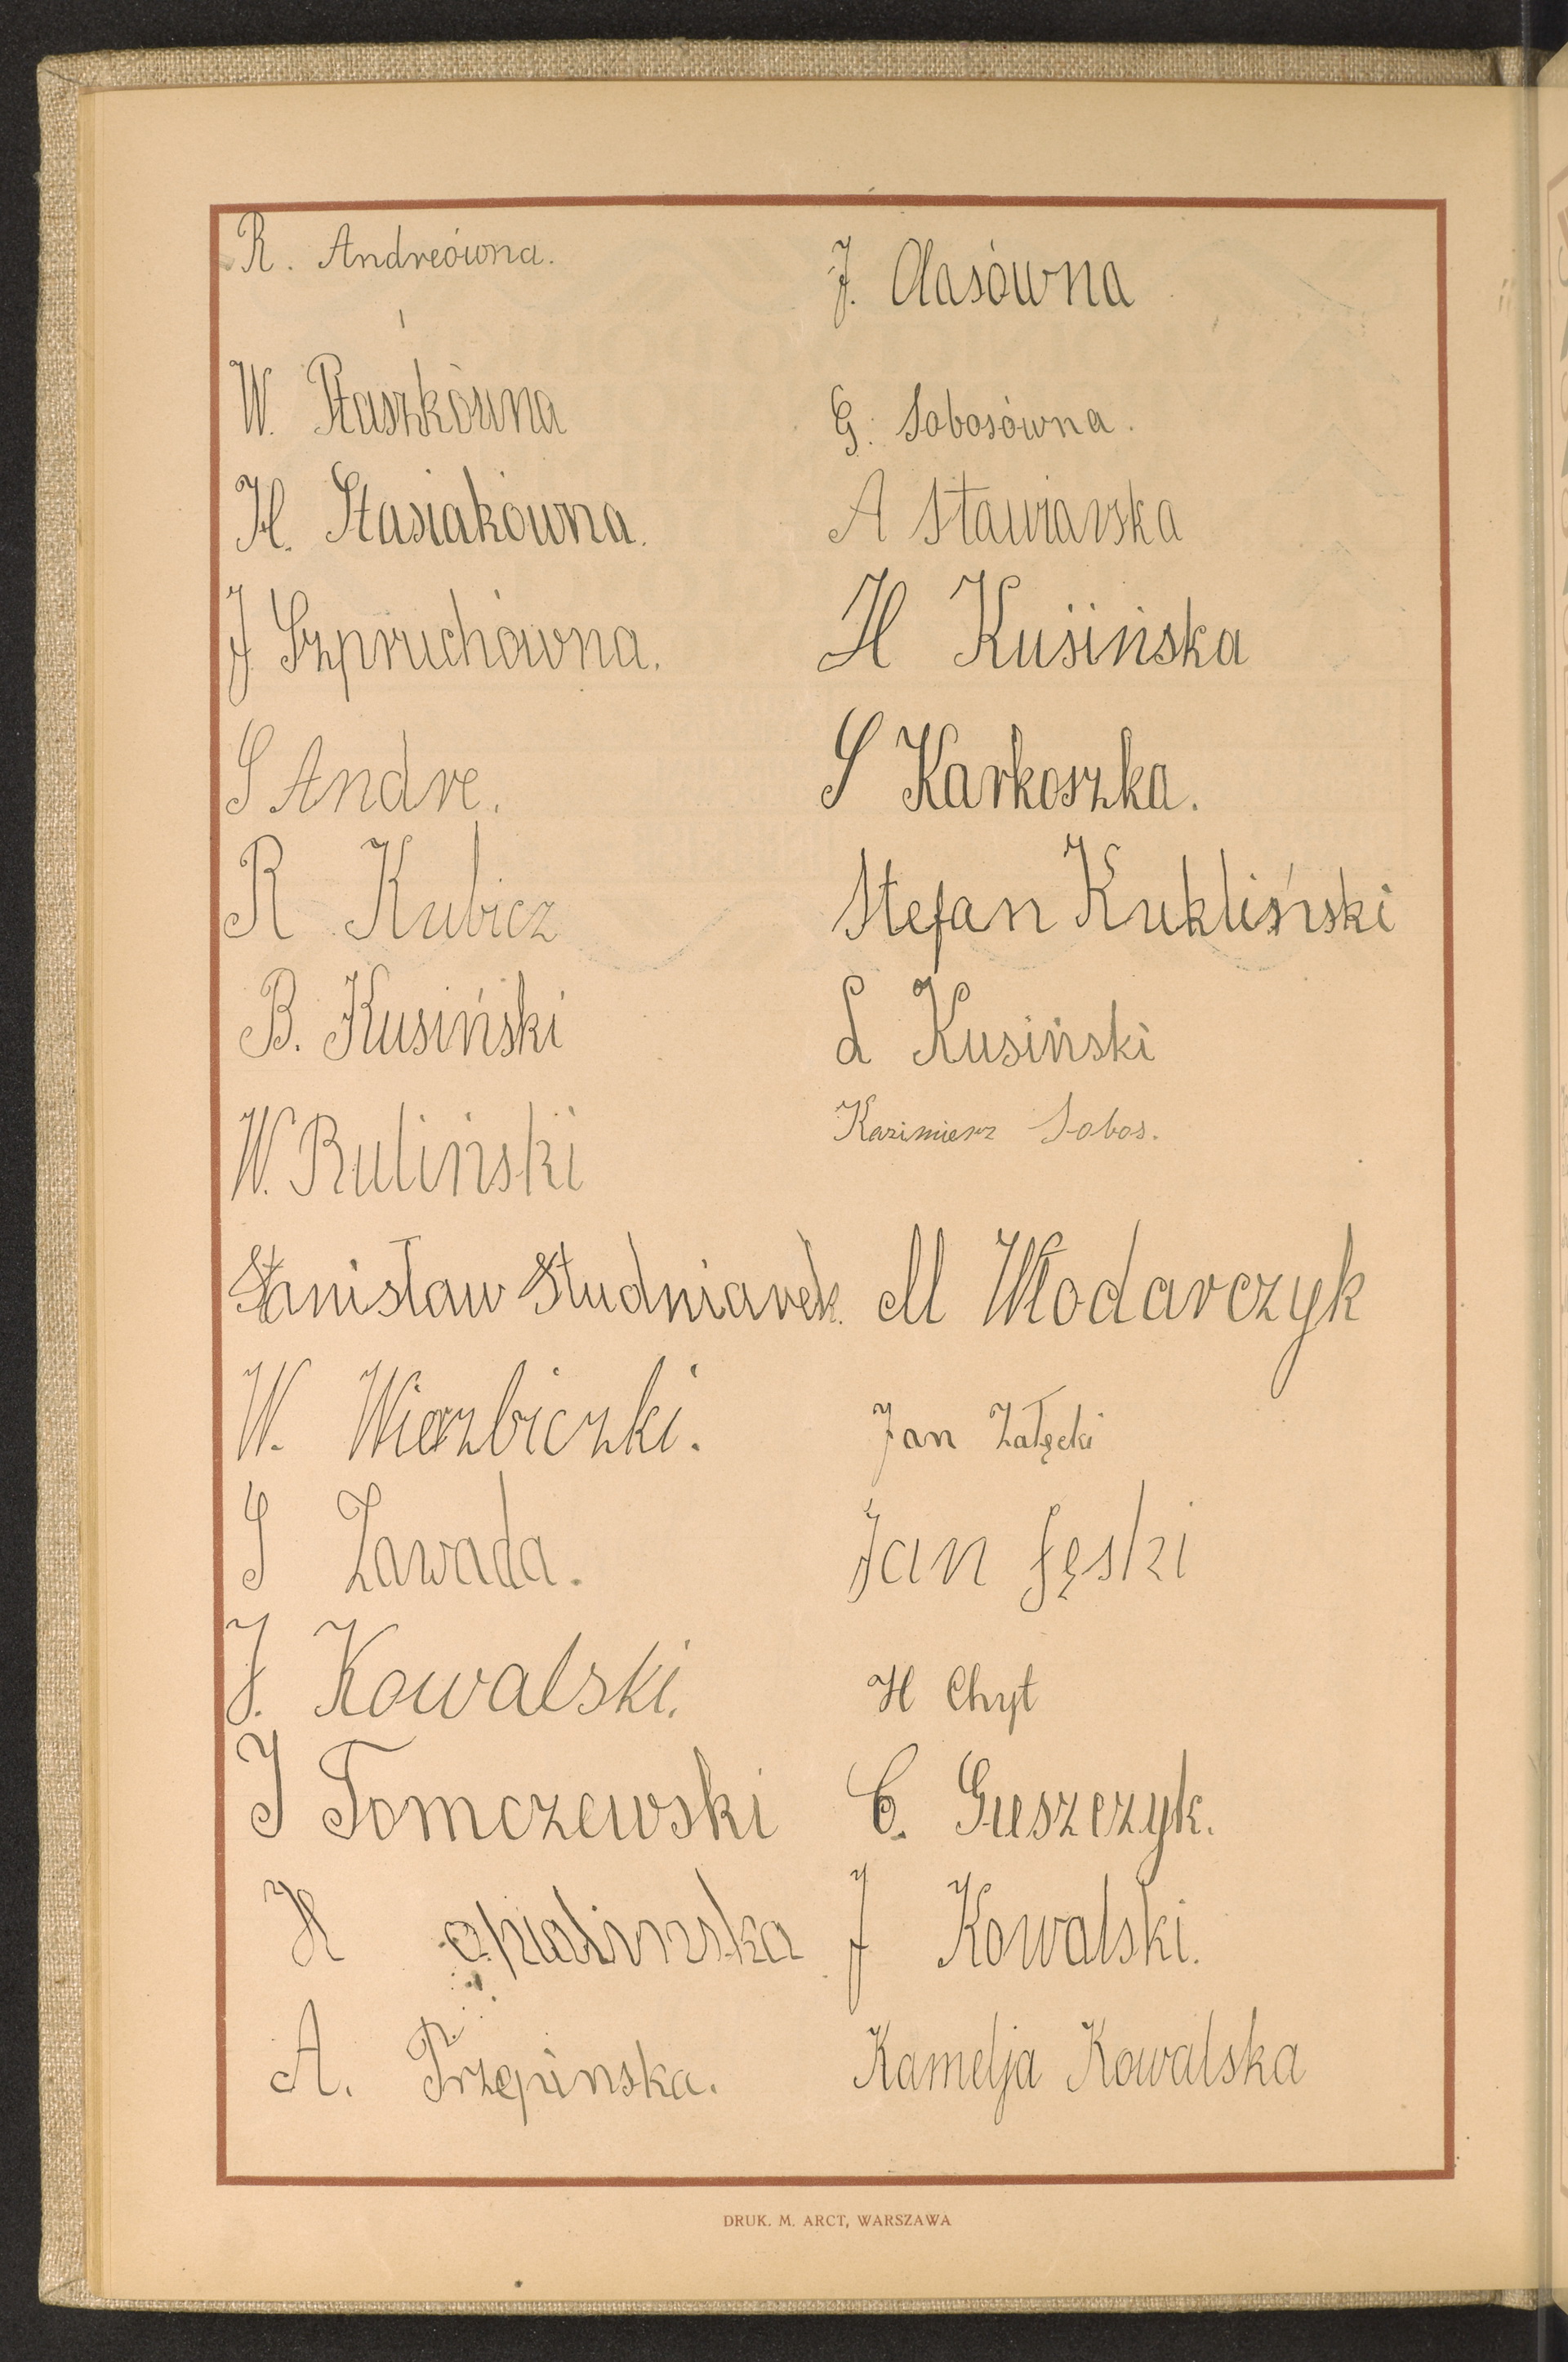 R. Andreówna.
W. Ptaszkówna
H. Stasiakówna.
J Szpruchówna.
S Andre.
R Kubicz
B. Kusiński
W. Ruliński
Stanisław Studniarek.
W. Wierzbiczki.
S Zawada.
J. Kowalski.
J Tomczewski
H opialinska
A. Trzepinska.
J. Olasówna
G. Sobosówna.
A Stawiarska
H Kusińska
S Karkoszka.
Stefan Kukliński
L Kusiński
Kazimierz Sobos.
M Włodarczyk
Jan Załęcki
Jan Łęski
H Chyt
C. Guszczyk.
J Kowalski.
Kamelja Kowalska
DRUK. M. ARCT, WARSZAWA